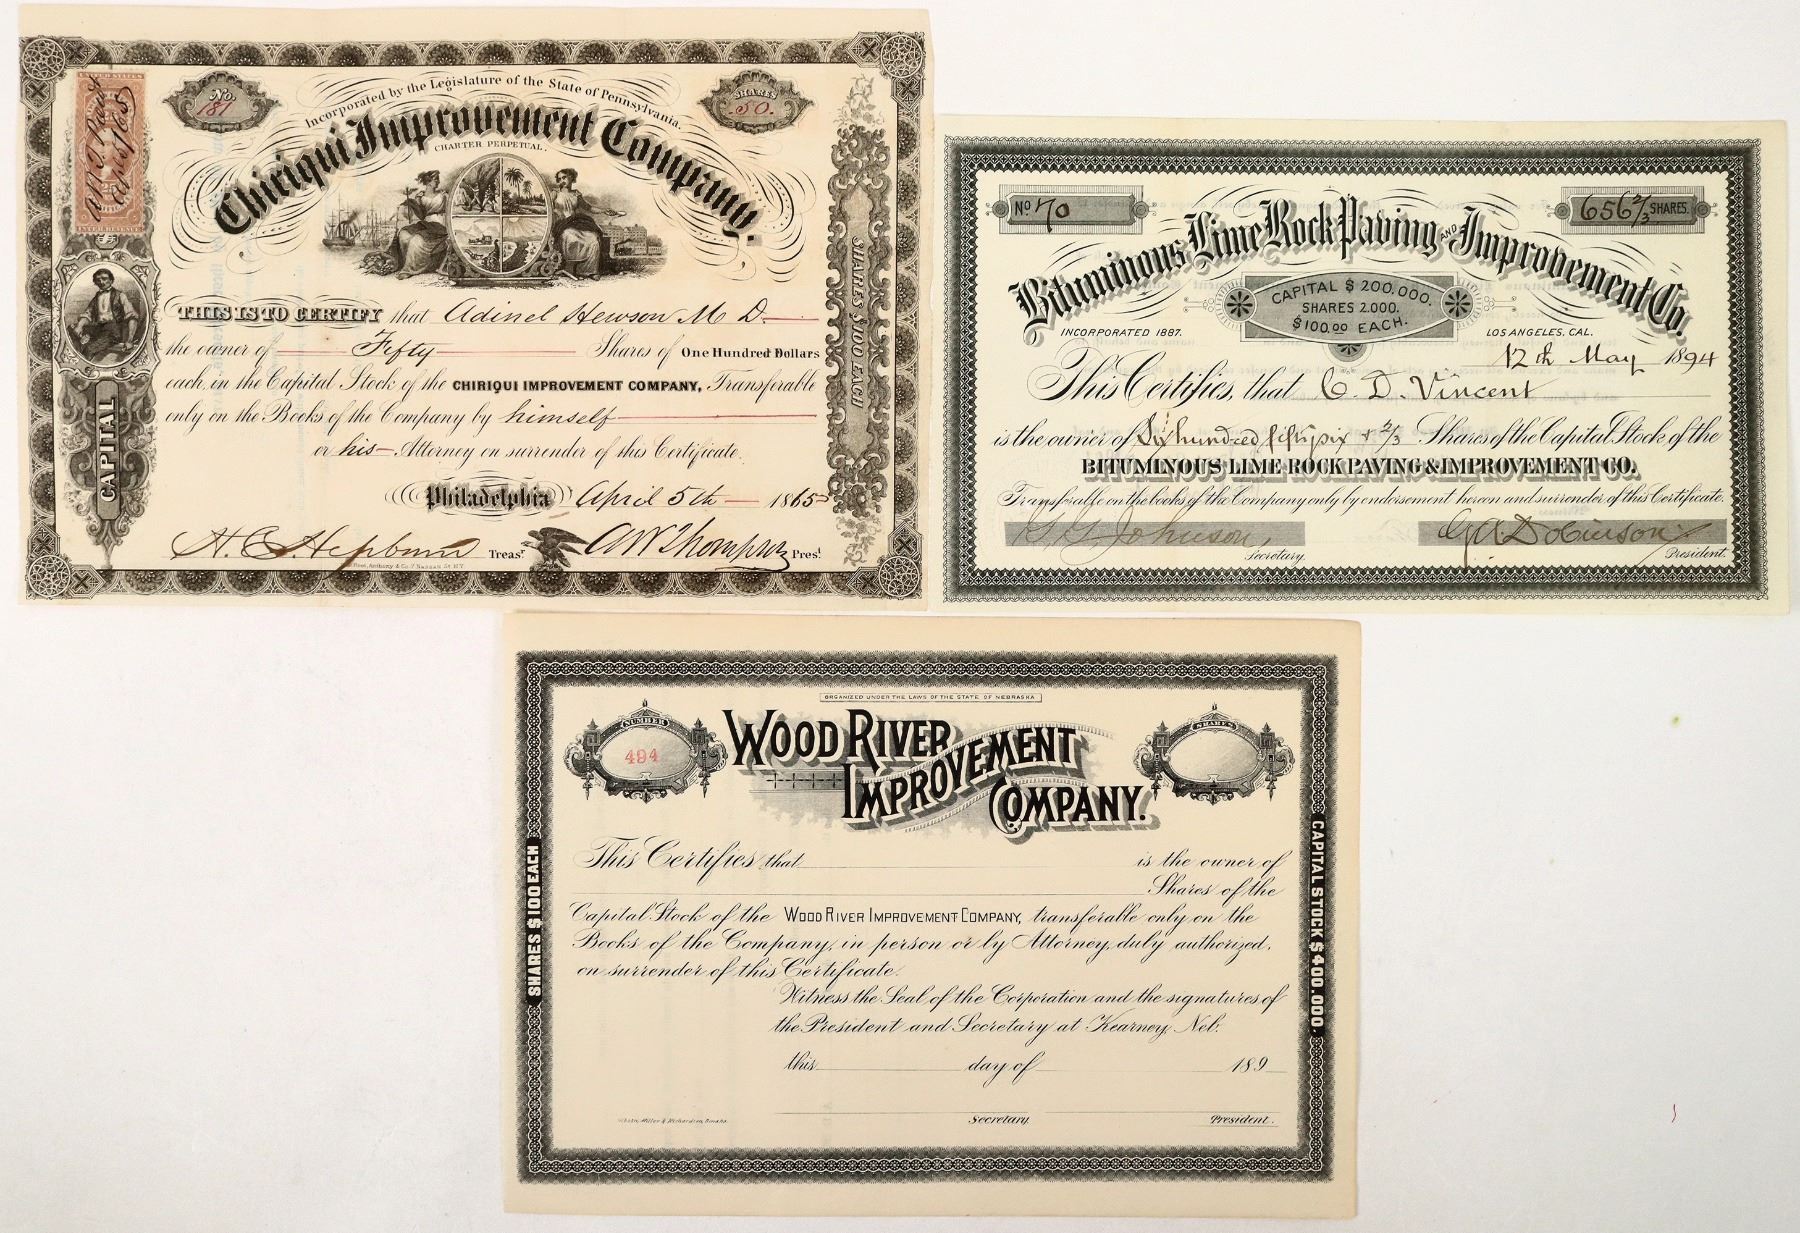 UNITED STATES
INTER. REVENUE
No.
181
Incorporated by the Legislature of the State of Pennsylvania.
SHARES
50.
Chiriqui Improvement Company.
CHARTER PERPETUAL.
THIS IS TO CERTIFY that Adinel Hewson M D
the owner of Fifty Shares of One Hundred Dollars
each, in the Capital Stock of the CHIRIQUI IMPROVEMENT COMPANY, Transferable
only on the Books of the Company by himself
or his Attorney on surrender of this Certificate.
Philadelphia April 5th 1865
H. C. Hepburn Treasr. A W Thompson Prest.
CAPITAL
SHARES $100 EACH
No 70
656 2/3 SHARES.
Bituminous Lime Rock Paving AND Improvement Co.
CAPITAL $200,000.
SHARES 2.000.
$100.00 EACH.
INCORPORATED 1887.
LOS ANGELES, CAL.
12th May 1894
This Certifies, that C. D. Vincent
is the owner of Six hundred fifty six & 2/3 Shares of the Capital Stock of the
BITUMINOUS LIME ROCK PAVING & IMPROVEMENT CO.
Transferable on the books of the Company only by endorsement hereon and surrender of this Certificate.
Johnson, Dobinson
Secretary. President.
ORGANIZED UNDER THE LAWS OF THE STATE OF NEBRASKA
NUMBER
494
SHARES
WOOD RIVER
IMPROVEMENT
COMPANY.
This Certifies that is the owner of
Shares of the
Capital Stock of the WOOD RIVER IMPROVEMENT COMPANY, transferable only on the
Books of the Company, in person or by Attorney, duly authorized,
on surrender of this Certificate.
Witness the Seal of the Corporation and the signatures of
the President and Secretary at Kearney, Neb.
this day of 189
Secretary. President.
Miller & Richardson, Omaha.
SHARES $100 EACH
CAPITAL STOCK $400,000.